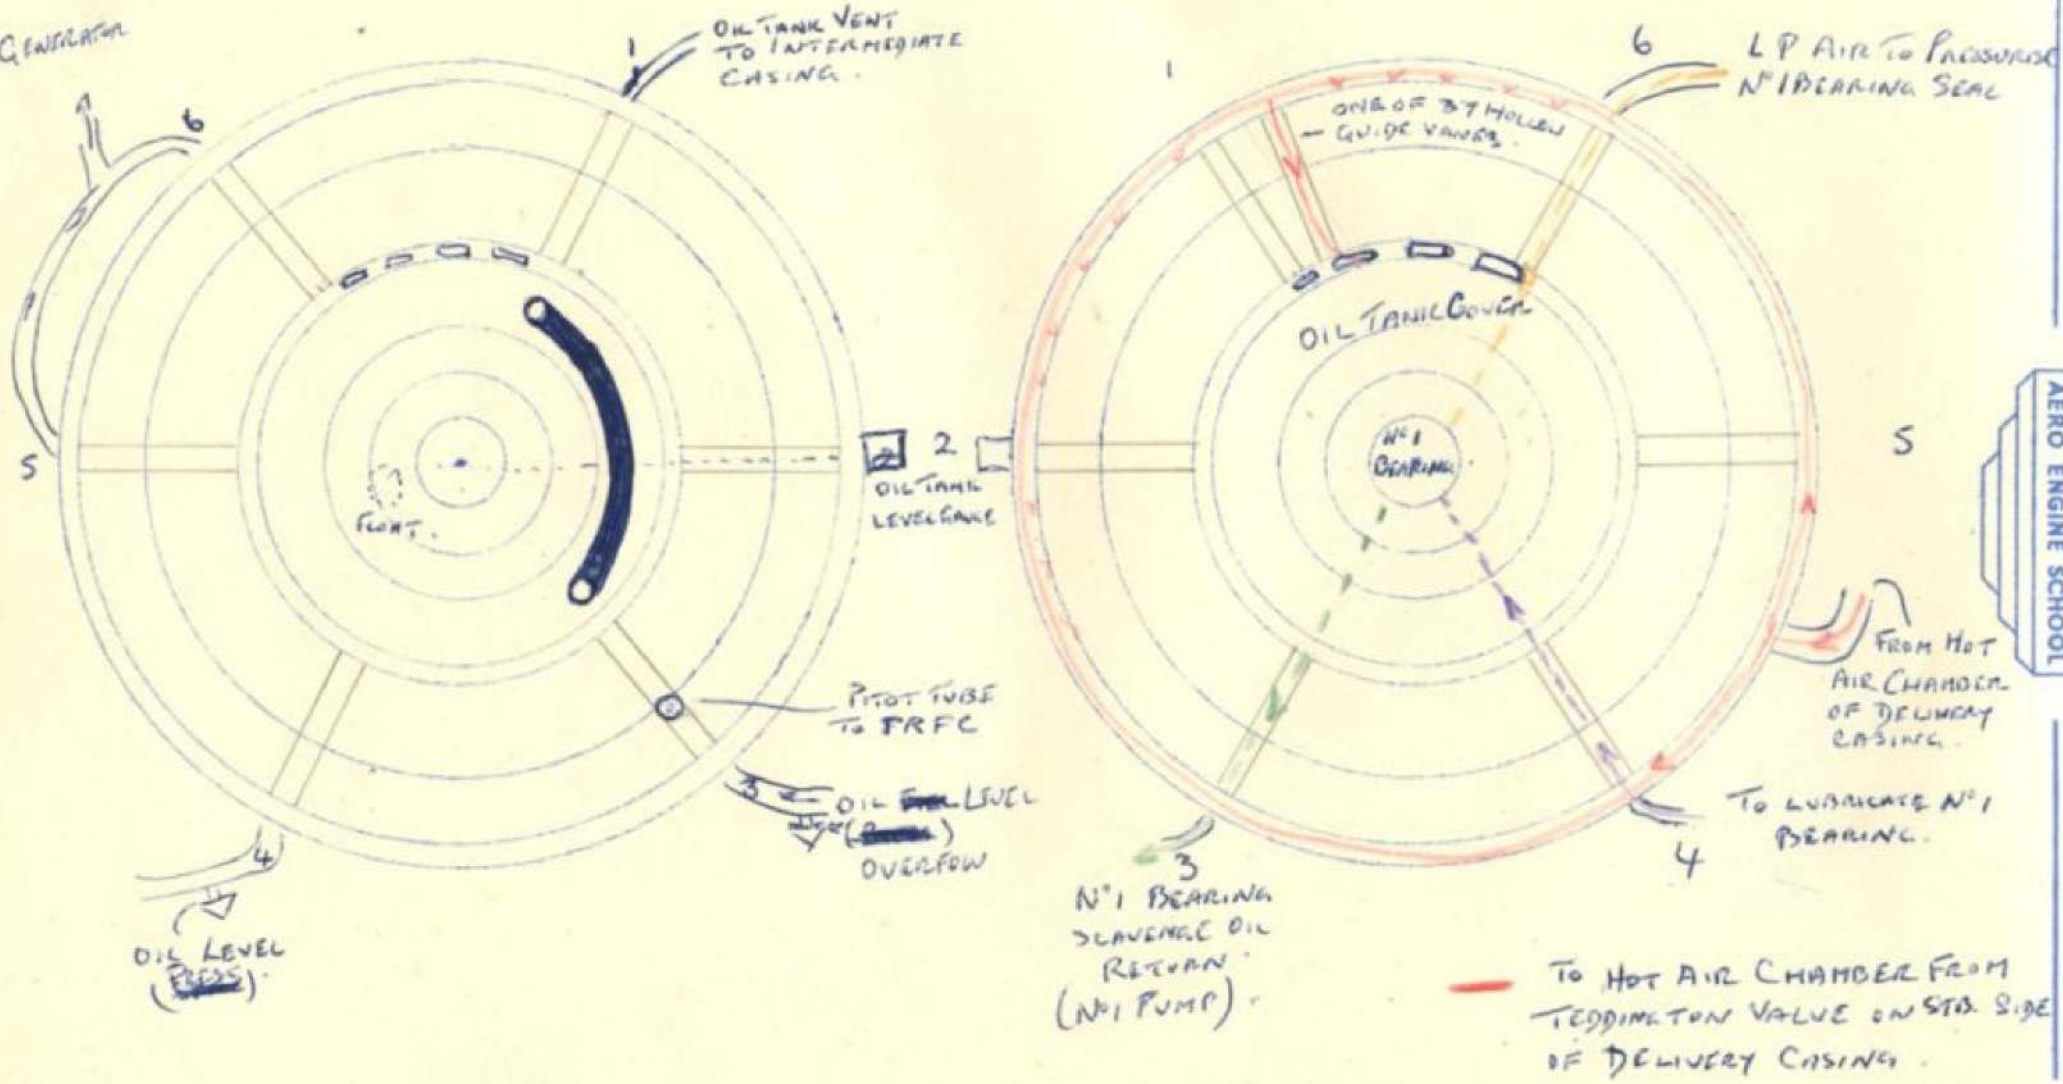 GENERATOR
6
1
OIL TANK VENT
TO INTERMEDIATE
CASING.
5
FLOAT.
2
OIL TANK
LEVEL GAUGE
PITOT TUBE
TO PRFC
3
OIL LEVEL
OVERFOW
4
OIL LEVEL
(PRESS).
1
6
LP AIR TO PRESSURISE
Nº 1 BEARING SEAL
ONE OF 37 HOLLOW
GUIDE VANES.
OIL TANK COVER
Nº 1
BEARING
5
FROM HOT
AIR CHAMBER
OF DELIVERY
CASING.
TO LUBRICATE Nº 1
BEARING.
4
3
Nº 1 BEARING
SCAVENGE OIL
RETURN.
(Nº 1 PUMP).
TO HOT AIR CHAMBER FROM
TEDDINGTON VALVE ON STB. SIDE
OF DELIVERY CASING.
AERO ENGINE SCHOOL